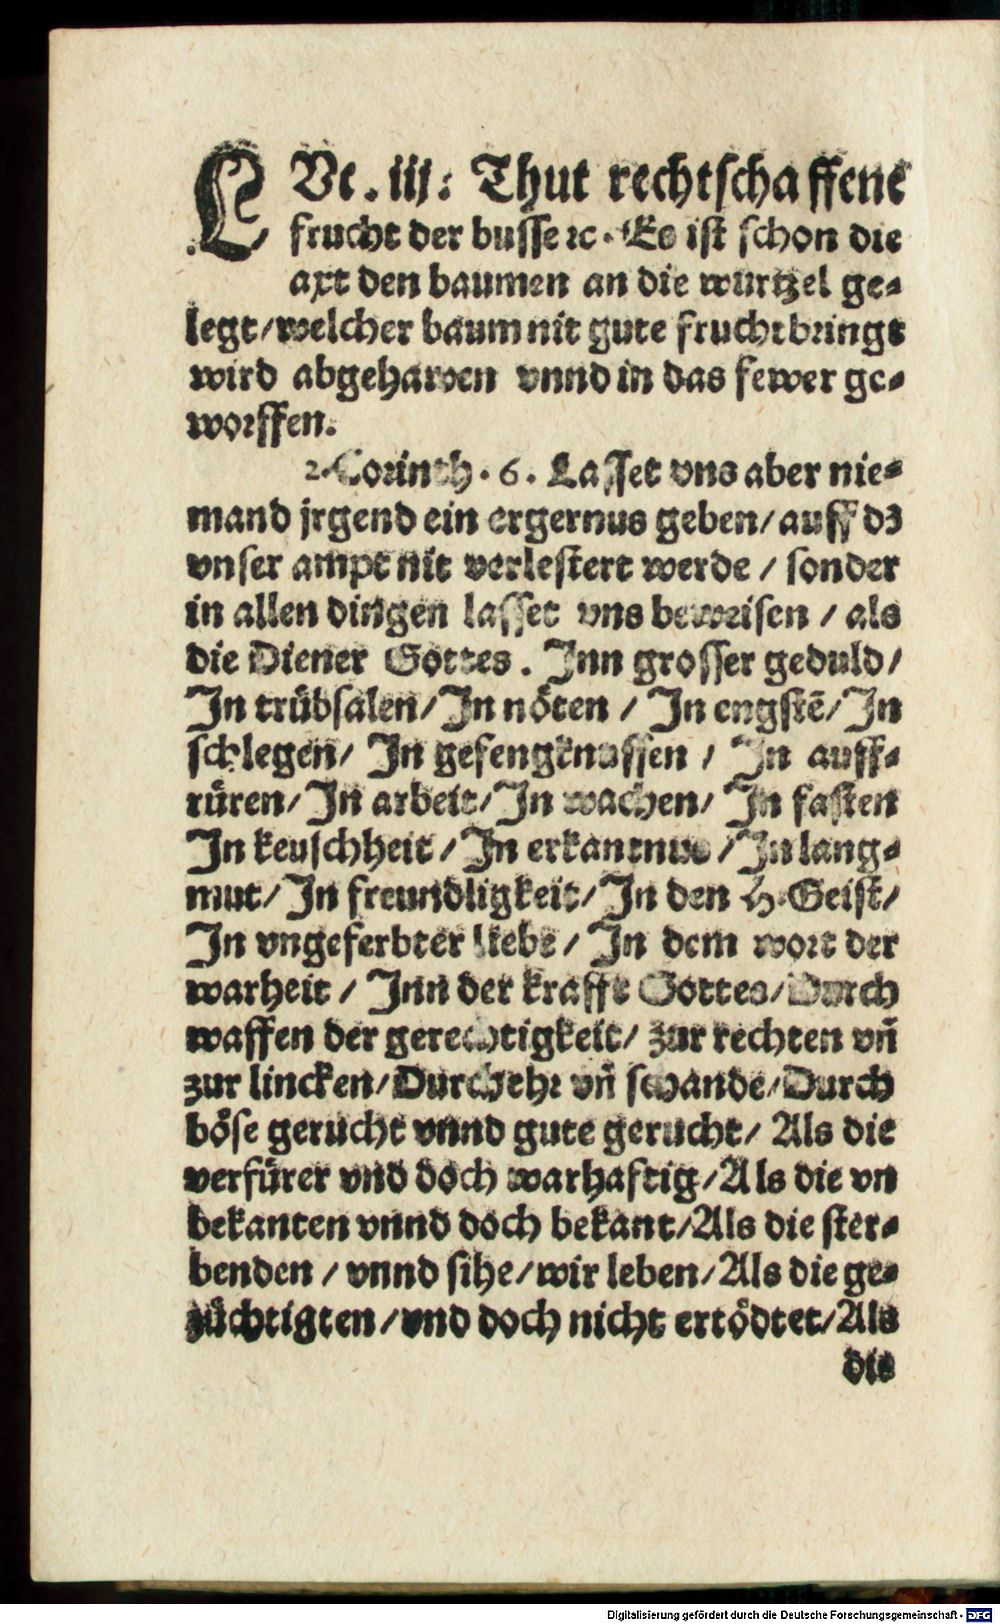 LVc. iij. Thut rechtschaffene
frucht der busse ꝛc. Es ist schon die
axt den baumen an die wurtzel ge-
legt/welcher baum nit gute frucht bringt
wird abgehawen vnnd in das fewer ge-
worffen.
2. Corinth. 6. Lasset vns aber nie-
mand jrgend ein ergernus geben/auff dz
vnser ampt nit verlestert werde / sonder
in allen dingen lasset vns beweisen / als
die Diener Gottes. Inn grosser geduld/
In trübsalen/In nöten / In engstē/In
schlegen/ In gefengknussen / In auff-
rüren/In arbeit/In wachen/ In fasten
In keuschheit / In erkantnus /In lang-
mut/ In freundligkeit/In den H. Geist/
In vngeferbter liebe / In dem wort der
warheit / Inn der krafft Gottes/Durch
waffen der gerechtigkeit/ zur rechten vn̄
zur lincken/Durch ehr vn̄ schande/Durch
böse gerücht vnnd gute gerucht/ Als die
verfürer vnd doch warhaftig/Als die vn
bekanten vnnd doch bekant/Als die ster-
benden / vnnd sihe/wir leben/Als die ge-
züchtigten /vnd doch nicht ertödtet/Als
die
Digitalisierung gefördert durch die Deutsche Forschungsgemeinschaft - DFG